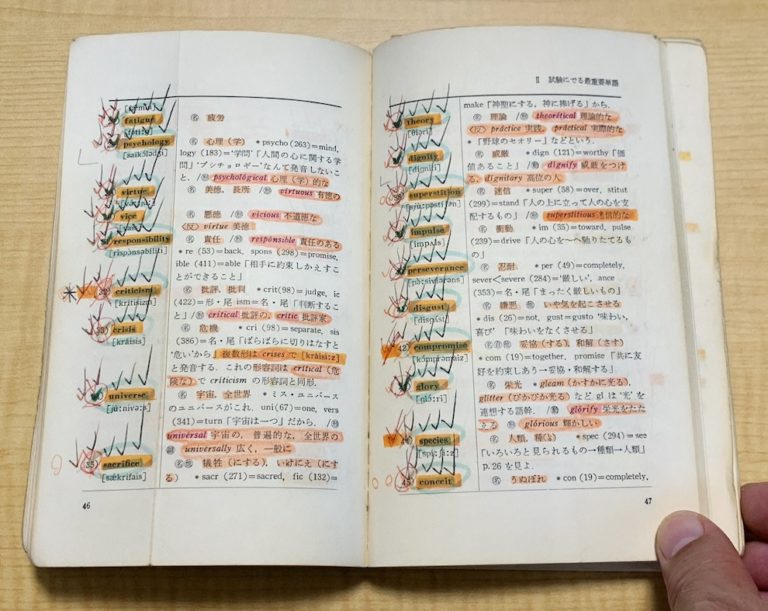 fatigue
名 疲労
psychology
名 心理(学) * psycho (263)=mind,
logy (183)='学問'「人間の心に関する学
問」'プシチョロギー'なんて発音しないこ
と. /形 psychológical 心理(学)的な
virtue
名 美徳, 長所 /形 virtuous 有徳の
vice
名 悪徳 /形 vicious 不道徳な
(反) virtue 美徳
responsibility
名 責任 /形 respónsible 責任のある
* re (53)=back, spons (298)=promise,
ible (411)=able「相手に約束しかえすこ
とができること」
criticism
[krítisizm]
名 批評, 批判 * crit(98)=judge, ic
(422)=形・尾 ism=名・尾「判断するこ
と」/形 critical 批評の, critic 批評家
crisis
[kráisis]
名 危機 * cri (98)=separate, sis
(386)=名・尾「ばらばらに切りはなすと
'危い'から」複数形は crises で [kráisi:z]
と発音する. これの形容詞は critical (危
険な)で criticism の形容詞と同形.
universe
[jú:nivə:s]
名 宇宙, 全世界 * ミス・ユニバース
のユニバースがこれ. uni(67)=one, vers
(341)=turn「宇宙は一つ」だから. /形
universal 宇宙の, 普遍的な, 全世界の
副 universally 広く, 一般に
35 sacrifice
[sǽkrifais]
名動 犠牲(にする), いけにえ(にす
る) * sacr (271)=sacred, fic (132)=
46
II 試験にでる最重要単語
make「神聖にする, 神に捧げる」から.
theory
[θíəri]
名 理論 /形 theorétical 理論的な
(反) práctice 実践, práctical 実際的な
* 「野球のセオリー」などという.
dignity
[dígniti]
名 威厳 * dign (121)=worthy「価
値あること」/動 dignify 威厳をつけ
る, dignitary 高位の人
superstition
名 迷信 * super (58)=over, stitut
(299)=stand「人の上に立って人の心を支
配するもの」/形 superstitious 迷信的な
impulse
[ímpʌls]
名 衝動 * im (35)=toward, pulse
(239)=drive「人の心を〜へ馳りたてるも
の」
perseverance
名 忍耐 * per (49)=completely,
sever<severe (284)='厳しい', ance
(353)=名・尾「まったく厳しいもの」
disgust
[disgʌ́st]
名 嫌悪 動 いや気を起こさせる
* dis (26)=not, gust=gusto '味わい,
喜び' '味わいをなくさせる」
42 compromise
[kɔ́mprəmaiz]
名自動 妥協(する), 和解(さす)
* com (19)=together, promise「共に友
好を約束しあう→妥協・和解する」
glory
[glɔ́:ri]
名 栄光 * gleam (かすかに光る)
glitter (ぴかぴか光る) など gl は'光'を
連想する語幹. /動 glórify 栄光をたた
える 形 glórious 輝かしい
species
[spí:ʃi:z]
名 人類, 種(しゅ) * spec (294)=see
「いろいろと見られるもの→種類→人類」
p.26 を見よ.
45 conceit
名 うぬぼれ * con (19)=completely,
47